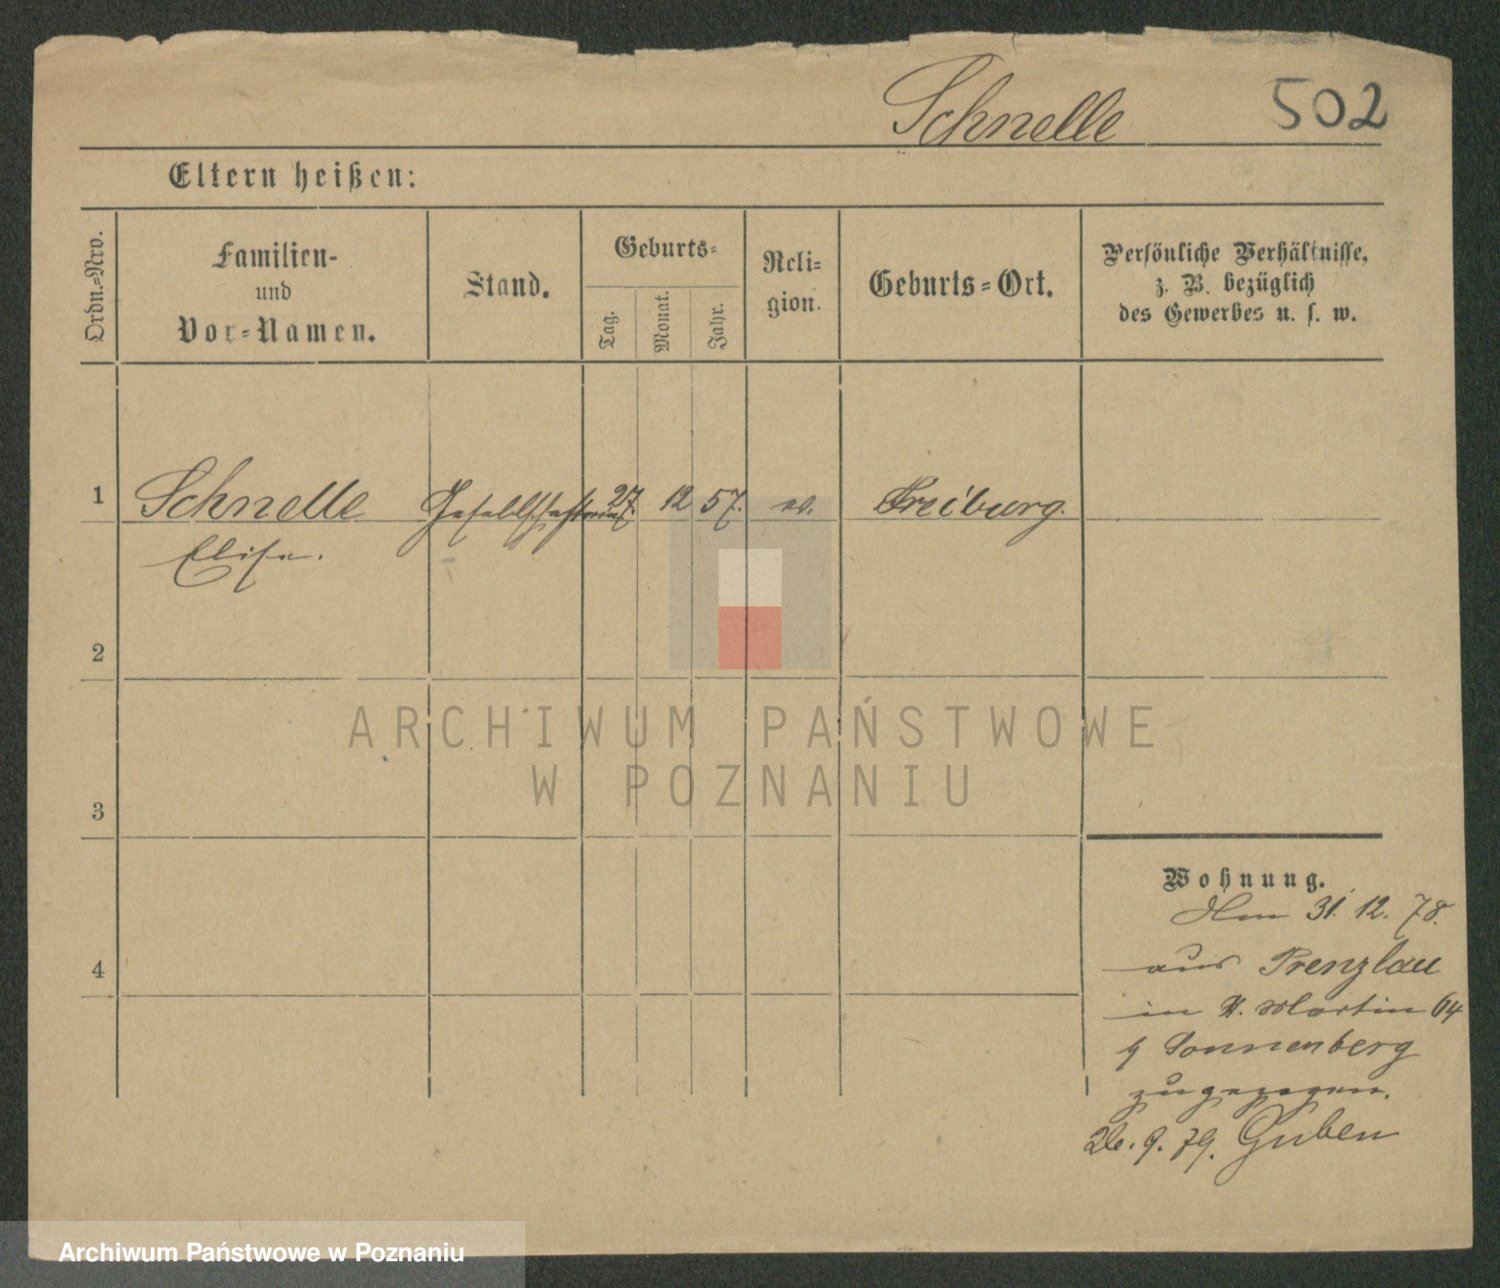 Schnelle 502
Eltern heißen:
Ordn.-Nro.
Familien-
und
Vor-Namen.
Stand.
Geburts-
Tag.
Monat.
Jahr.
Reli-
gion.
Geburts-Ort.
Persönliche Verhältnisse,
z. B. bezüglich
des Gewerbes u. s. w.
1 Schnelle Gesellschafterin 27. 12 57. ev. Freiburg.
Elise.
2
ARCHIWUM PAŃSTWOWE
W POZNANIU
3
Wohnung.
Am 31. 12. 78.
aus Prenzlau
4
in St. Martin 64
Sonnenberg
zugezogen.
26. 9. 79. Guben
Archiwum Państwowe w Poznaniu